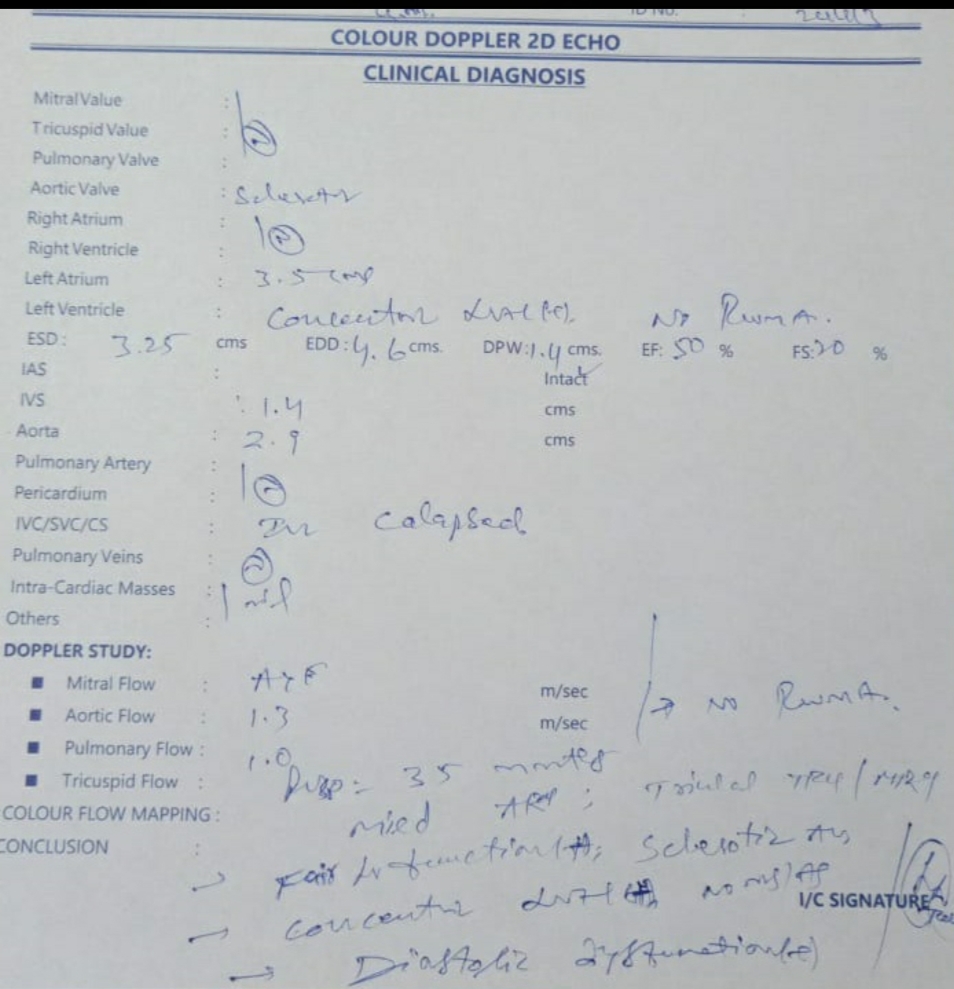 ID NO. :
COLOUR DOPPLER 2D ECHO
CLINICAL DIAGNOSIS
Mitral Value :
Tricuspid Value : N
Pulmonary Valve :
Aortic Valve : Sclerotic
Right Atrium : N
Right Ventricle :
Left Atrium : 3.5 cms
Left Ventricle : Concentric LVH(+). No RWMA.
ESD : 3.25 cms EDD : 4.6 cms. DPW: 1.4 cms. EF: 50 % FS: 20 %
IAS : Intact
IVS : 1.4 cms
Aorta : 2.9 cms
Pulmonary Artery :
Pericardium : N
IVC/SVC/CS : IVC Calapsed
Pulmonary Veins : N
Intra-Cardiac Masses : nil
Others :
DOPPLER STUDY:
Mitral Flow : A>E m/sec
Aortic Flow : 1.3 m/sec → NO RWMA.
Pulmonary Flow : 1.0
Tricuspid Flow : 35
COLOUR FLOW MAPPING : AR ; Trivial
CONCLUSION :
→ Fair LV function(+); Sclerotic AV,
→ Concentric LVH(+), No MS/AS
I/C SIGNATURE
→ Diastolic dysfunction(+)